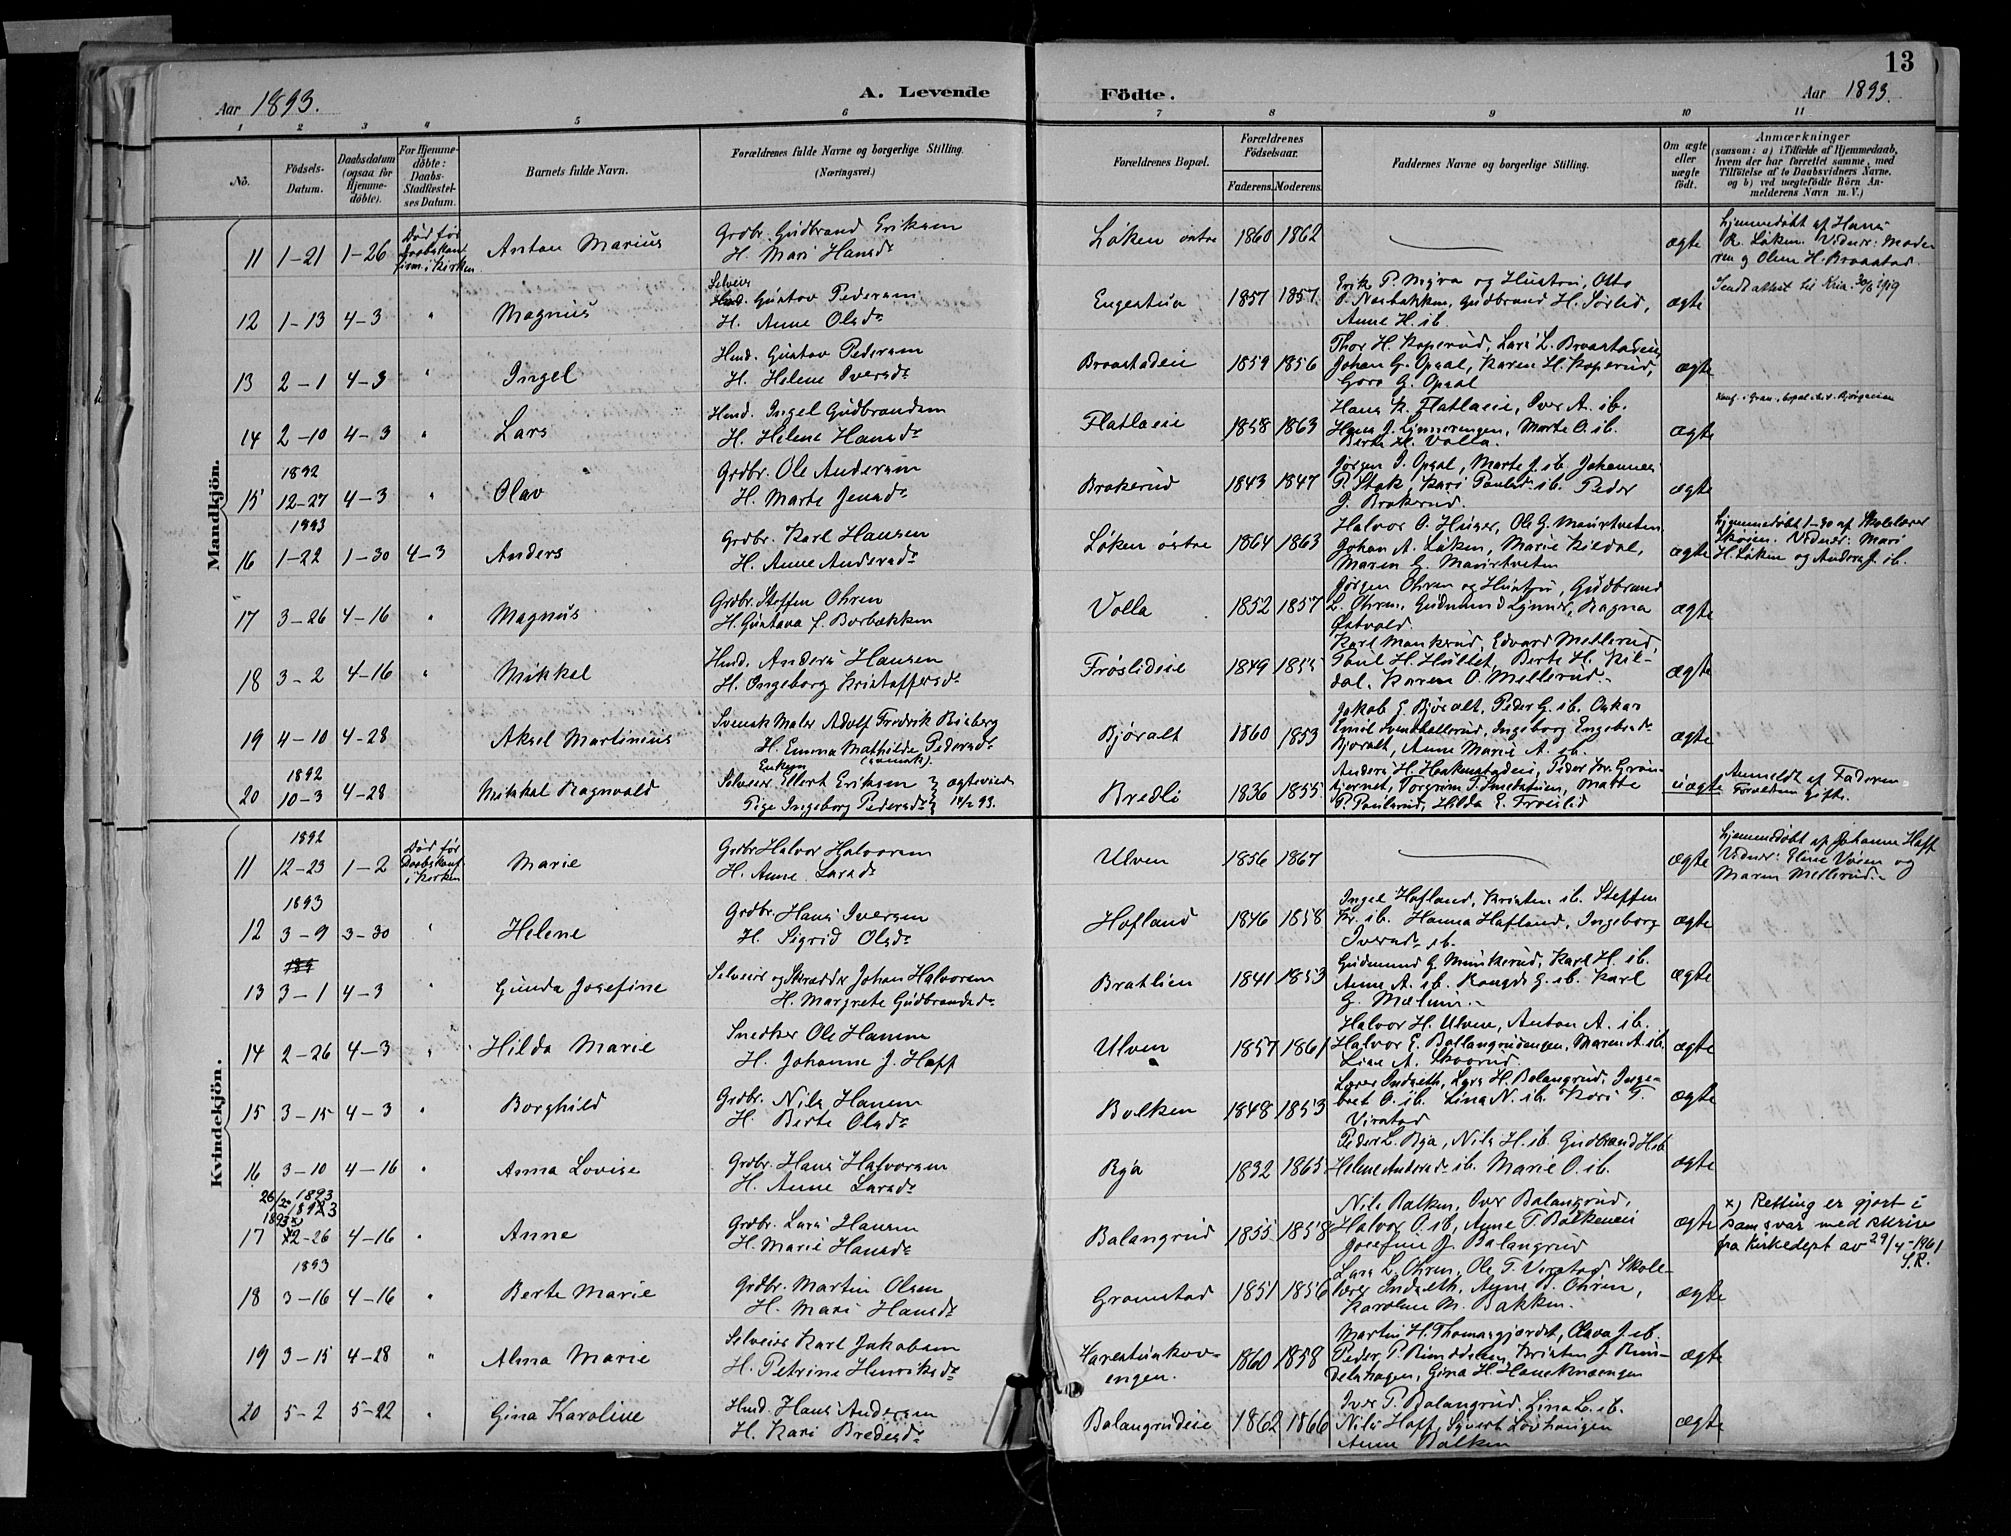 13
Aar 1893. A. Levende Födte. Aar 1893.
1 2 3 4 5 6 7 8 9 10 11
Nô. Födsels-Datum. Daabsdatum (ogsaa for Hjemmedöbte). For Hjemmedöbte: Daabs-Stadfæstelses Datum. Barnets fulde Navn. Forældrenes fulde Navne og borgerlige Stilling. (Næringsvei.) Forældrenes Bopæl. Forældrenes Födselsaar. Faderens. Moderens. Faddernes Navne og borgerlige Stilling. Om ægte eller uægte födt. Anmærkninger (saasom: a) i Tilfælde af Hjemmedaab, hvem der har forrettet samme, med Tilföielse af to Daabsvidners Navne. og b) ved uægtefödte Börn Anmelderens Navn m. V.)
Mandkjön.
11 1-21 1-26 Død før Daabskonfirm. i Kirken Anton Marius Grdbr. Gudbrand Eriksen H. Mari Hansdr Løken östre 1860 1862 — ægte Hjemmedøbt af Hans R. Løken. Vidner: Moderen og Olem H. Braastad.
12 1-13 4-3 " Magnus Selveier Gustav Pedersen H. Anne Olsdr Engestua 1857 1857 Erik P. Myra og Hustru, Otto O. Næsbakken, Gudbrand H. Sørlid, Anne H. ib. ægte Sendt attest til Kria. 30/6 1919
13 2-1 4-3 " Ingel Hmd. Gustav Pedersen H. Helene Iversdr Braastadeie 1859 1856 Thor H. Koperud, Lars L. Braastadeie, Johan G. Opsal, Karen H. Koperud, Goro G. Opsal ægte
14 2-10 4-3 " Lars Hmd. Ingel Gudbrandsen H. Helene Hansdr Flatlaeie 1858 1863 Hans K. Flatlaeie, Iver A. ib. Hans J. Lynnerengen, Marte O. ib. Berte H. Volla. ægte
15 1892 12-27 4-3 " Olav Grdbr. Ole Andersen H. Marte Jensdr Brakerud 1843 1847 Jørgen J. Opsal, Marte J. ib. Johannes P. Stak, Kari Paulsd. ib. Peder J. Brakerud. ægte
16 1893 1-22 1-30 4-3 Anders Grdbr. Karl Hansen H. Anne Andersdr Løken östre 1864 1863 Halvor O. Huser, Ole G. Maurtveten, Johan A. Løken, Marie Kildal, Maren G. Maurtveten ægte Hjemmedøbt 1-30 af Skolelærer Skøien. Vidner: Mari H. Løken og Anders J. ib.
17 3-26 4-16 " Magnus Grdbr. Steffen Ohren H. Gustava f. Borbækken Volla 1852 1857 Jørgen Ohren og Hustru, Gudbrand L. Ohren, Gudmund Lynner, Ragna Østvold. ægte
18 3-2 4-16 " Mikkel Hmd. Anders Hansen H. Ingeborg Kristoffersdr Frøslideie 1849 1855 Karl Munkerud, Edvard Mellerud, Paul H. Hultet, Berte H. Kildal, Karen O. Mellerud. ægte
19 4-10 4-28 Aksel Martinius Svensk Maler Adolf Fredrik Biaberg H. Emma Mathilde Pedersdr (svensk). Bjøralt 1860 1853 Jakob E. Bjøralt, Peder G. ib. Oskar Emil Svenskallerud, Ingeborg Engebrdr Bjøralt, Anne Marie A. ib. ægte
20 1892 10-3 4-28 Mikkel Ragnvald Enkem. Selveier Ellert Eriksen Pige Ingeborg Pedersdr } ægteviede 14/2 93. Bredli 1836 1855 Anders H. Haakenstadeie, Peder Kr. Grønkjernet, Torgrim T. Smedstuen, Mathe P. Paulsrud, Hilda E. Frøislid uægte Anmeldt af Faderen Foreldren gifte.
Kvindekjön.
11 1892 12-23 1-2 Død før Daabskonf. i Kirken Marie Grdbr. Halvor Halvorsen H. Anne Larsdr Ulven 1856 1867 — ægte Hjemmedøbt af Johanne Haff Vidner: Eline Vøien og Maren Mellerud.
12 1893 3-9 3-30 " Helene Grdbr. Hans Iversen H. Sigrid Olsdr Hofland 1846 1858 Ingel Hofland, Kristen ib. Steffen Kr. ib. Hanna Hofland, Ingeborg Iversdr ib. ægte
13 3-1 4-3 " Gunda Josefine Selveier og Skrædder Johan Halvorsen H. Margrete Gudbrandsdr Bratlien 1841 1853 Gudmund G. Munkerud, Karl H. ib. Anne A. ib. Rangdi G. ib. Karl G. Mælum. ægte
14 2-26 4-3 " Hilda Marie Snedker Ole Hansen H. Johanne J. Haff Ulven 1857 1861 Halvor H. Ulven, Anton A. ib. Halvor E. Ballangrudengen, Maren A. ib. Lina A. Skoverud ægte
15 3-15 4-3 " Borghild Grdbr. Nils Hansen H. Berte Olsdr Bolken 1848 1853 Lærer Indseth, Lars H. Balangrud, Ingebret O. ib. Lina N. ib. Kari T. Virstad ægte
16 3-10 4-16 " Anna Lovise Grdbr. Hans Halvorsen H. Anne Larsdr Bya 1832 1865 Peder L. Bya, Nils H. ib. Gudbrand H. ib. Helene Andersdr ib. Marie O. ib. ægte
17 26/2 1893 1893 x) 2-26 4-16 " Anne Grdbr. Lars Hansen H. Marie Hansdr Balangrud 1855 1858 Nils Bolken, Iver Balangrud, Halvor O. ib, Anne T. Bolkeneie Josefine J. Balangrud ægte x) Retting er gjort i samsvar med skriv fra Kirkedept av 29/4-1961 S.R.
18 1893 3-16 4-16 " Berte Marie Grdbr. Martin Olsen H. Mari Hansdr Gramstad 1851 1856 Lars L. Ohren, Ole T. Virstad, Skolelærer Indseth, Anne J. Ohren, Karoline M. Bakken. ægte
19 3-15 4-28 " Alma Marie Selveier Karl Jakobsen H. Petrine Henriksdr Harestuskovengen. 1860 1858 Martin H. Thomasgjordet, Olava J. ib. Peder P. Runddelen, Kristen J. Runddelshagen, Gina H. Hanekneengen ægte
20 5-2 5-22 " Gina Karoline Hmd. Hans Andersen H. Kari Bredesdr Balangrudeie 1862 1866 Iver P. Balangrud, Lina L. ib. Nils Haff, Syvert Løvhaugen Anne Bolken ægte